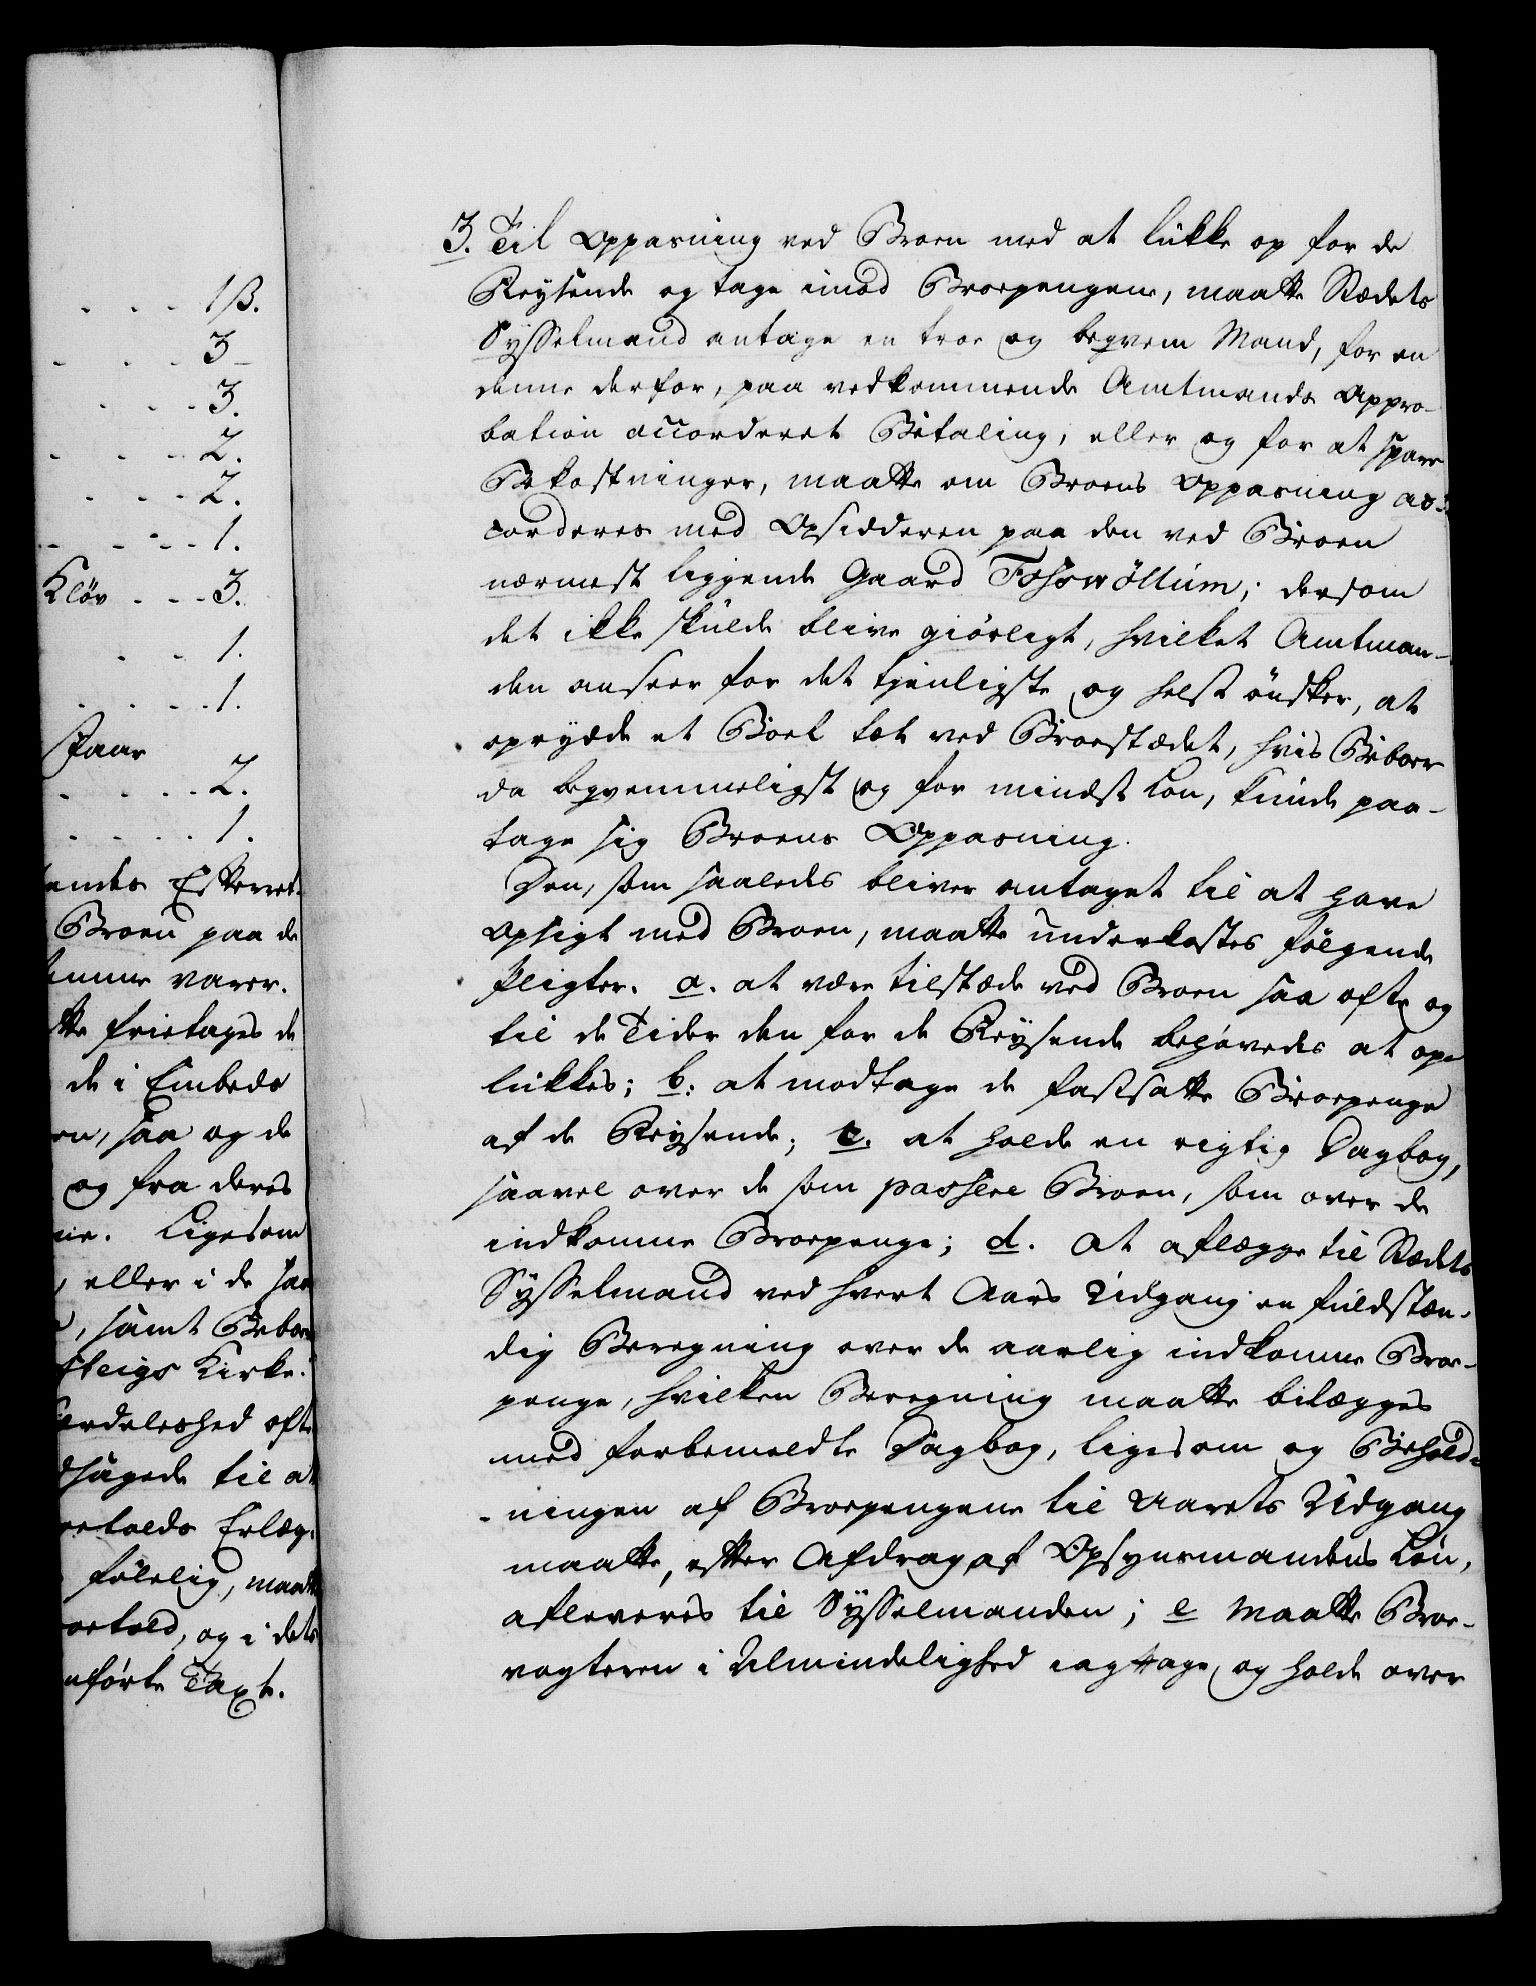 1 ß.
3
3.
2.
2.
1.
Kløv - - - 3.
1.
1.
Faar
2.
1.
Broen paa de
varer.
frietages de
de i Embeds
en, saa og de
og fra deres
Ligesom
eller i de
samt
Kirke.
ofte
til at
Erlæg-
følelig, maatte
og i dets
anførte Taxt.
3. Til Oppasning ved Broen med at lukke op for de
Reysende og tage imod Broepengene, maatte Stædets
Sysselmand antage en troe og beqvem Mand, for en
denne derfor, paa vedkommende Amtmands Appro-
bation accorderet Betaling, eller og for at spare
Bekostninger, maatte om Broens Oppasning ac-
corderes med Opsidderen paa den ved Broen
nærmest liggende Gaard Fossvöllum; dersom
det ikke skulde blive giørligt, hvilket Amtman-
den anseer for det tienligste og helst ønsker, at
oprydde et Boel tæt ved Broestædet, hvis Beboer
da beqvemmeligst og for mindst Løn, kunde paa-
tage sig Broens Oppasning.
Den, som saaledes bliver antaget til at have
Opsigt med Broen, maatte underkastes følgende
Pligter. a. at være tilstæde ved Broen saa ofte og
til de Tider den for de Reysende behøvedes at op-
lukkes; b. at modtage de fastsatte Broepenge
af de Reysende; c. at holde en rigtig Dagbog,
saavel over de som passere Broen, som over de
indkomne Broepenge; d. at aflægge til Stædets
Sysselmand ved hvert Aars Udgang en fuldstæn-
dig Beregning over de aarlig indkomne Broe-
penge, hvilken Beregning maatte bilægges
med forbemeldte Dagbog, ligesom og Behold-
ningen af Broepengene til Aarets Udgang
maatte, efter Afdrag af Opsynsmandens Løn,
afleveres til Sysselmanden; e maatte Broe-
vogteren i Almindelighed iagttage og holde over